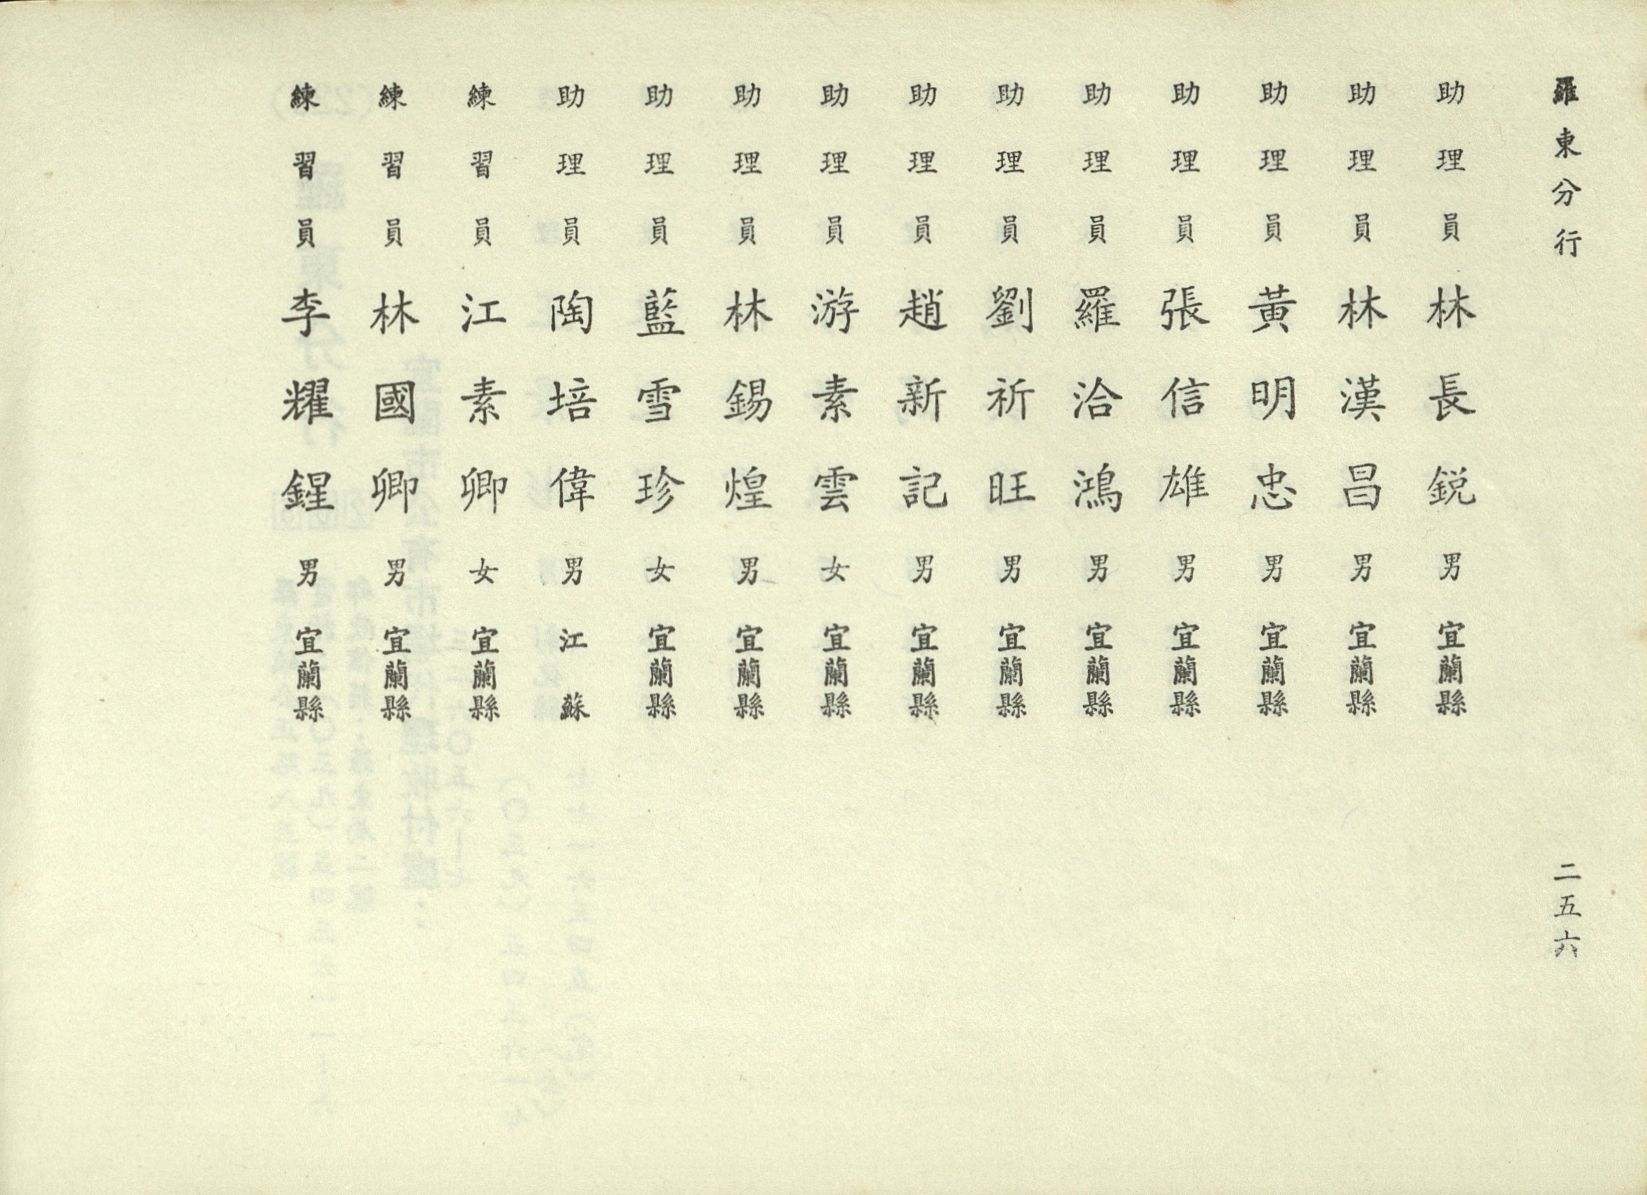 羅東分行
二五六
助理員 林長銳 男 宜蘭縣
助理員 林漢昌 男 宜蘭縣
助理員 黃明忠 男 宜蘭縣
助理員 張信雄 男 宜蘭縣
助理員 羅洽鴻 男 宜蘭縣
助理員 劉祈旺 男 宜蘭縣
助理員 趙新記 男 宜蘭縣
助理員 游素雲 女 宜蘭縣
助理員 林錫煌 男 宜蘭縣
助理員 藍雪珍 女 宜蘭縣
助理員 陶培偉 男 江蘇
練習員 江素卿 女 宜蘭縣
練習員 林國卿 男 宜蘭縣
練習員 李耀鍟 男 宜蘭縣